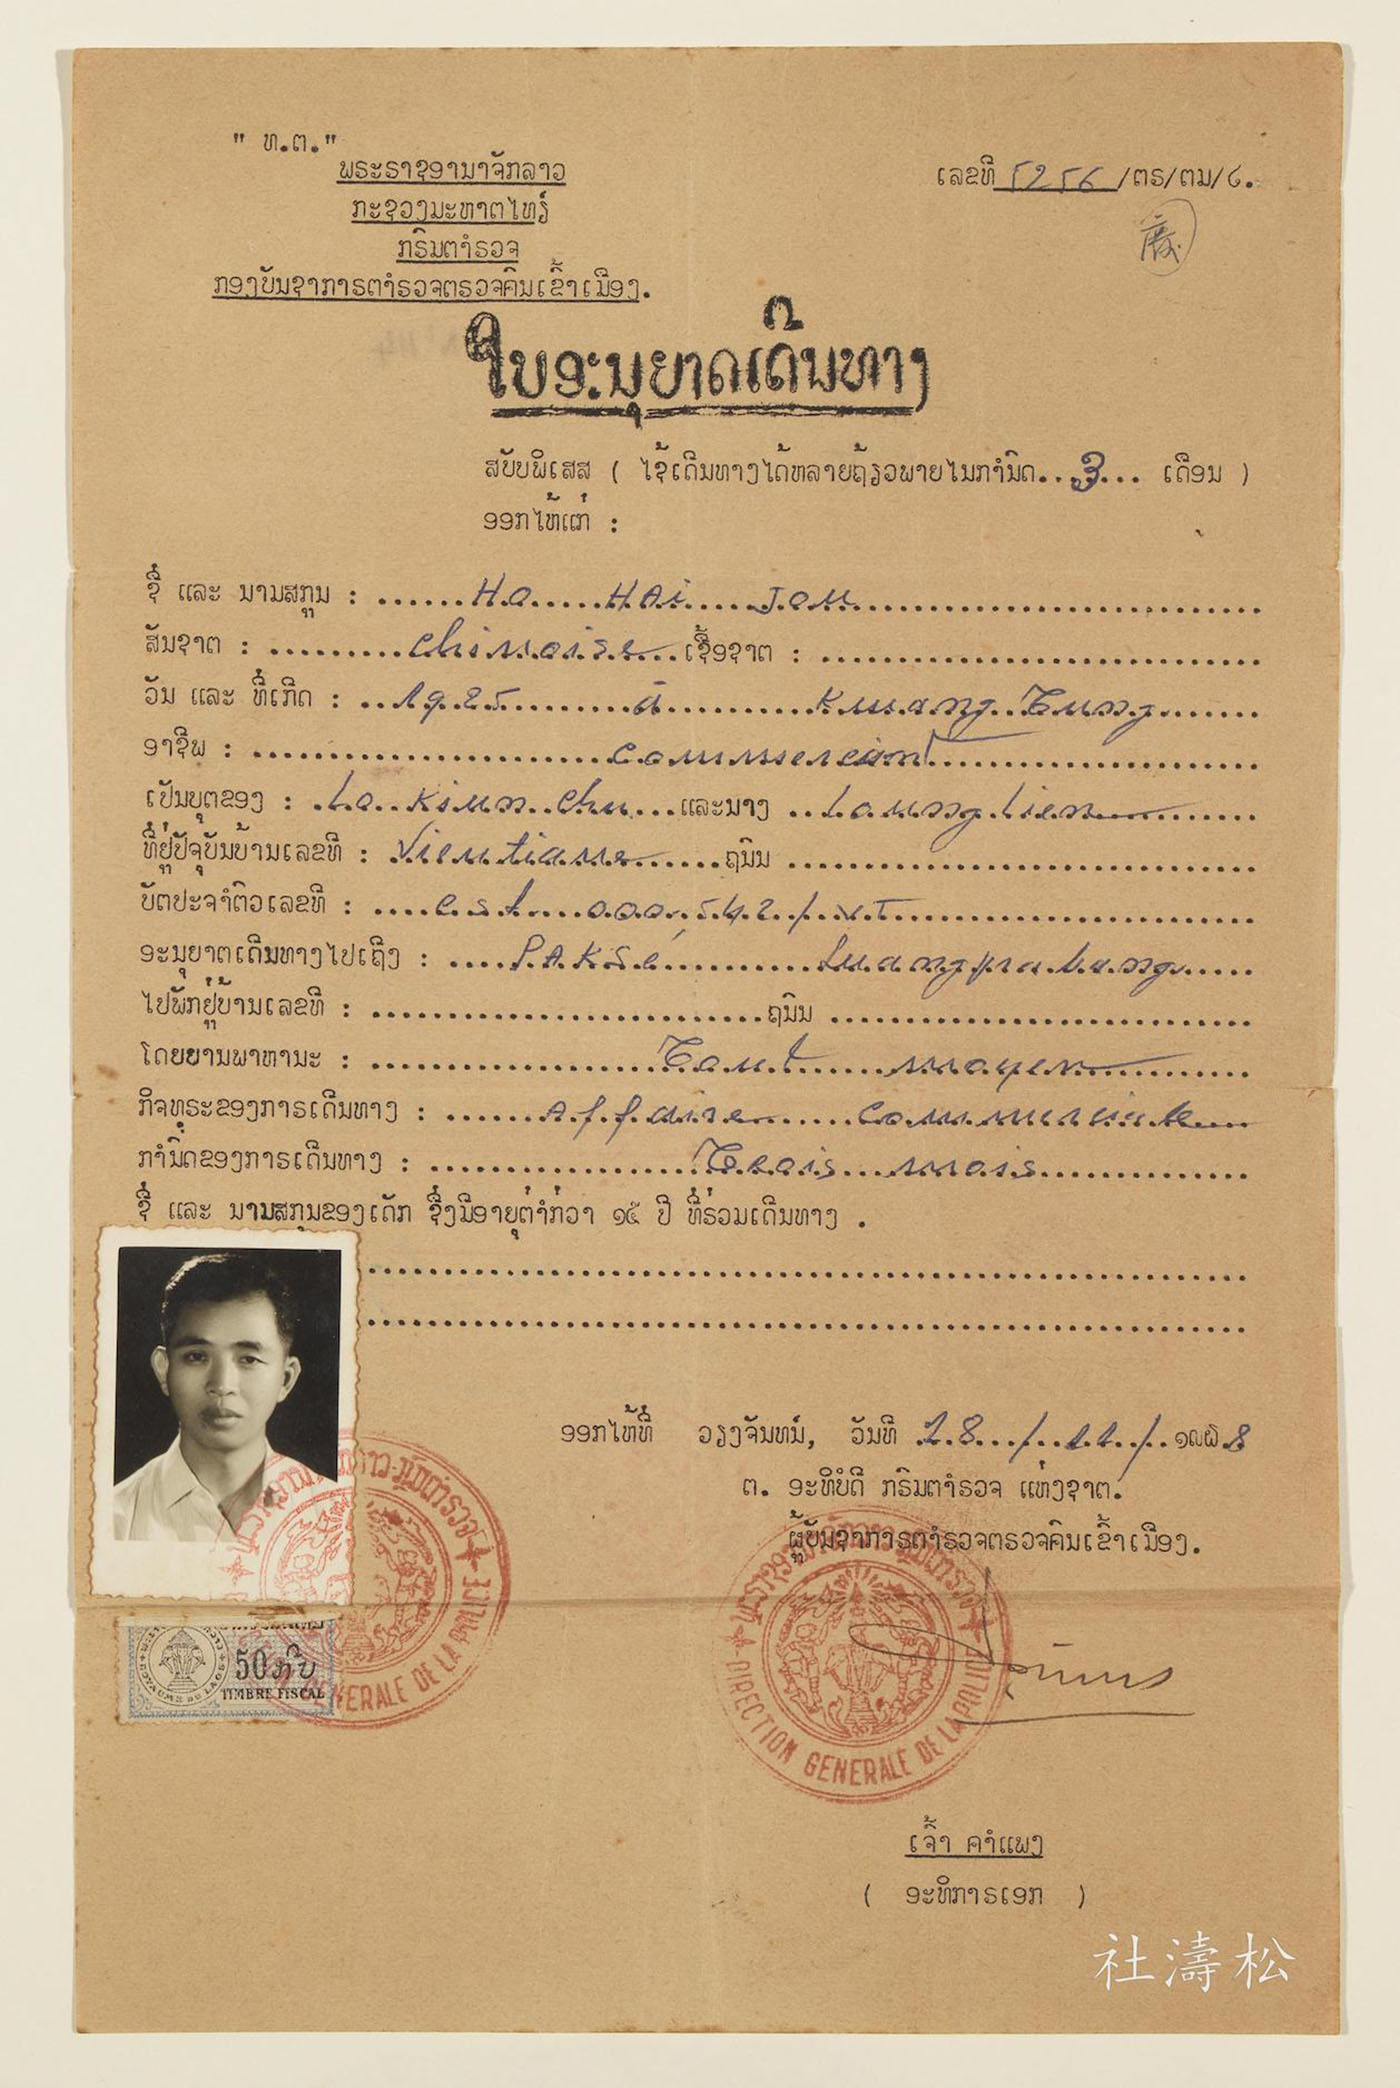 " ທ.ຕ."
ພຣະຣາຊອານາຈັກລາວ
ກະຊວງມະຫາດໄທຍ໌
ກຣົມຕຳຣວຈ
ກອງບັນຊາການຕຳຣວຈຕຣວຈຄົນເຂົ້າເມືອງ.
ເລຂທີ 5256 /ຕຣ/ຕມ/໒.
ໃບອະນຸຍາດເດີນທາງ
ສບັບພິເສສ ( ໃຊ້ເດີນທາງໄດ້ຫລາຍຖ້ຽວພາຍໃນກຳນົດ...3... ເດືອນ )
ອອກໃຫ້ແກ່ :
ຊື່ ແລະ ນາມສກຸນ : Ho HAi Jou
ສັນຊາຕ : chinoise ເຊື້ອຊາຕ :
ວັນ ແລະ ທີ່ເກີດ : 1925 à Kuang Tung
ອາຊີພ : commercant
ເປັນບຸຕຂອງ : Lo Kiun Chu ແລະນາງ Loung Lien
ທີ່ຢູ່ປັຈຈຸບັນບ້ານເລຂທີ : Vientiane ຖນົນ
ບັຕປະຈຳຕົວເລຂທີ : C.S.t. 000.542/VT
ອະນຸຍາຕເດີນທາງໄປເຖິງ : PAKSé Luangprabang
ໄປພັກຢູ່ບ້ານເລຂທີ : ຖນົນ
ໂດຍຍານພາຫານະ : Tout moyen
ກິຈທຸຣະຂອງການເດີນທາງ : Affaire commerciale
ກຳນົດຂອງການເດີນທາງ : Trois mois
ຊື່ ແລະ ນາມສກຸນຂອງເດັກ ຊຶ່ງມີອາຍຸຕ່ຳກ່ວາ ໑໕ ປີ ທີ່ຮ່ວມເດີນທາງ .
ອອກໃຫ້ທີ່ ວຽງຈັນທນ໌, ວັນທີ 18/11/໑໙໖8
ຕ. ອະທິບໍດີ ກຣົມຕຳຣວຈ ແຫ່ງຊາຕ.
ຜູ້ບັນຊາການຕຳຣວຈຕຣວຈຄົນເຂົ້າເມືອງ.
50 ກີບ
ROYAUME DU LAOS
TIMBRE FISCAL
DIRECTION GENERALE DE LA POLICE
DIRECTION GENERALE DE LA POLICE
ເຈົ້າ ຄຳແພງ
( ອະທິການເອກ )
社濤松